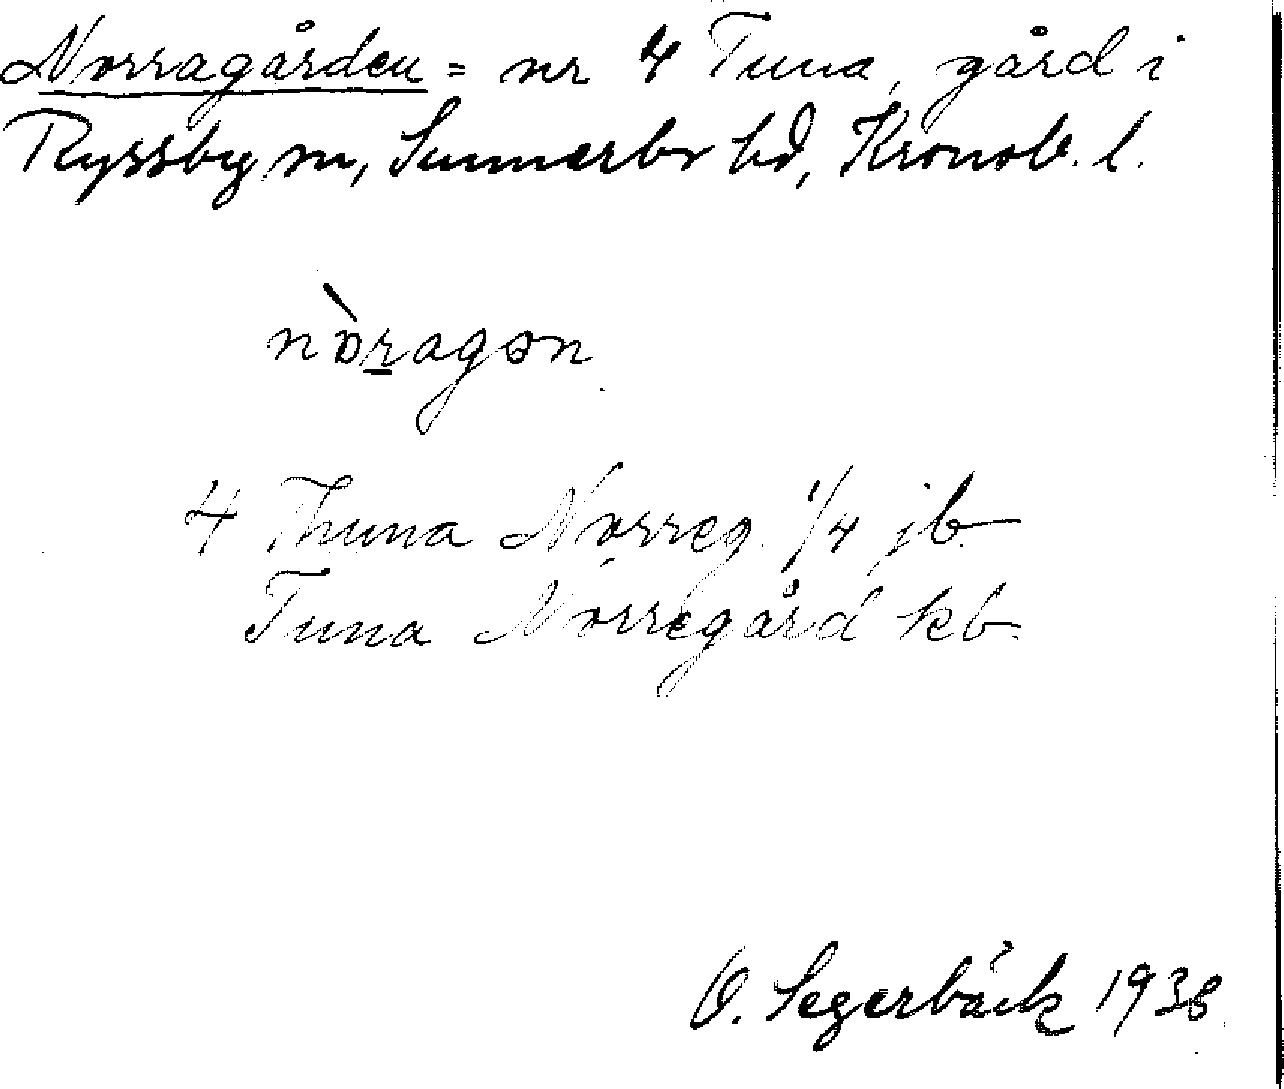 Norragården = nr 4 Tuna, gård i
Ryssby sn, Sunnerbo hd, Kronob. l.
nòragən
4 Thuna Norreg. 1/4 jb
Tuna Norregård kb
O. Segerbäck 1938